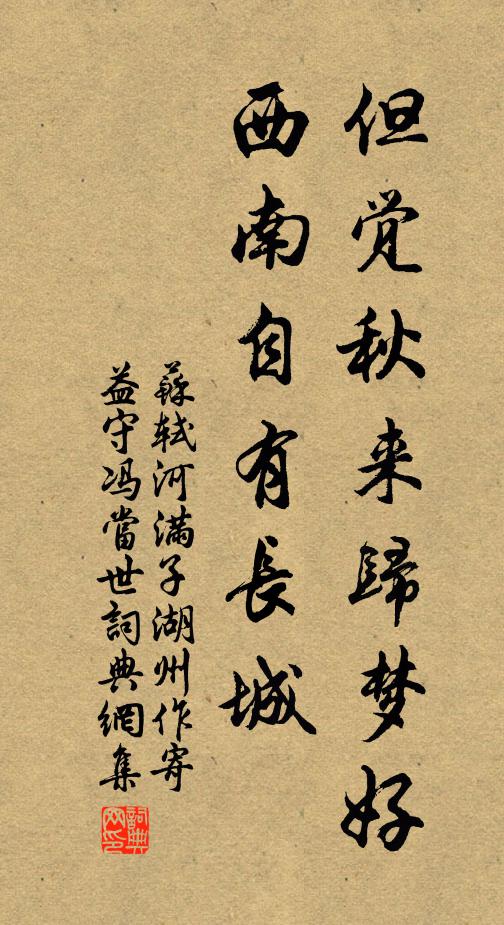 但觉秋来歸梦好
西南自有長城
蘇轼河满子湖州作寄
益守冯當世詞典網集
詞典
网印